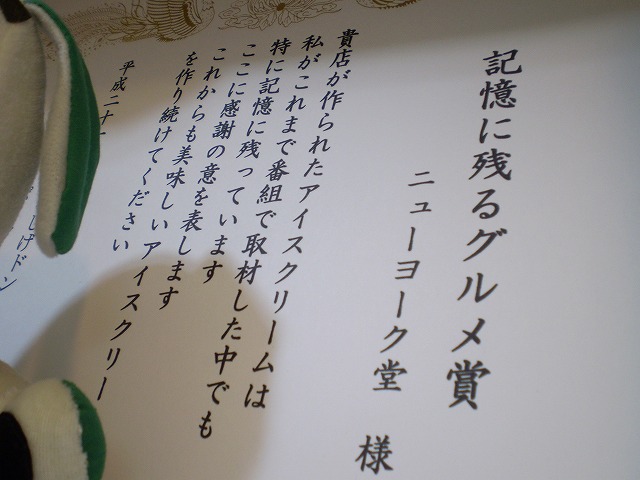 記憶に残るグルメ賞
ニューヨーク堂 様
貴店が作られたアイスクリームは
私がこれまで番組で取材した中でも
特に記憶に残っています
ここに感謝の意を表します
これからも美味しいアイスクリー
を作り続けてください
平成二十一
しげドン